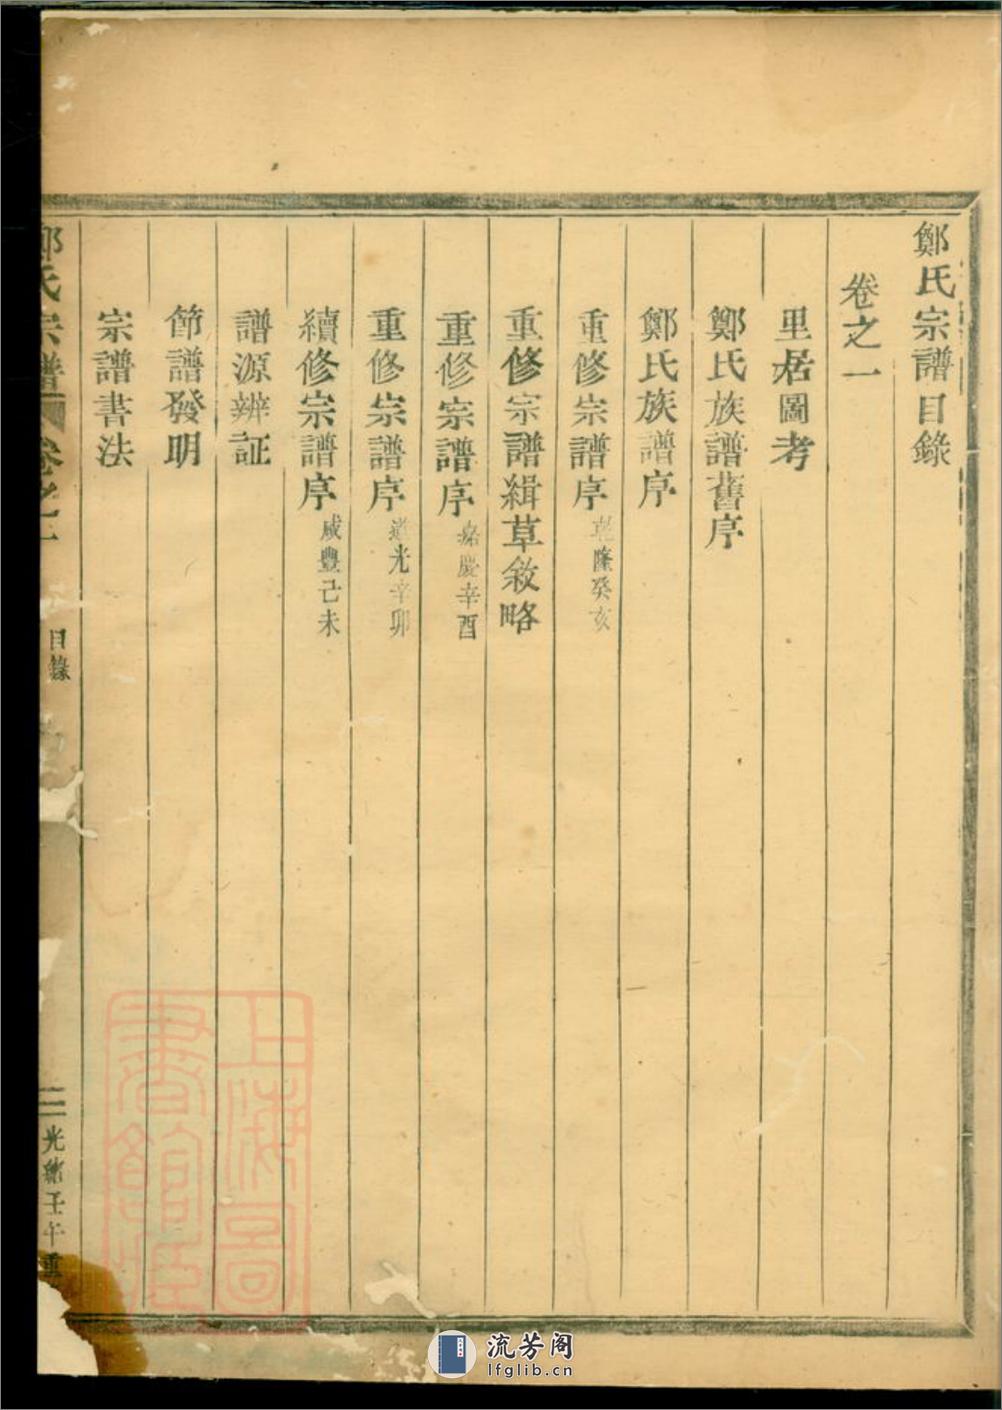 鄭氏宗譜目錄
卷之一
里居圖考
鄭氏族譜舊序
鄭氏族譜序
重修宗譜序 乾隆癸亥
重修宗譜緝草敘略
重修宗譜序 嘉慶辛酉
重修宗譜序 道光辛卯
續修宗譜序 咸豐己未
譜源辨証
節譜發明
宗譜書法
鄭氏宗譜 卷之一 目錄 光緒壬午重
上海圖書館藏
流芳阁
lfglib.cn